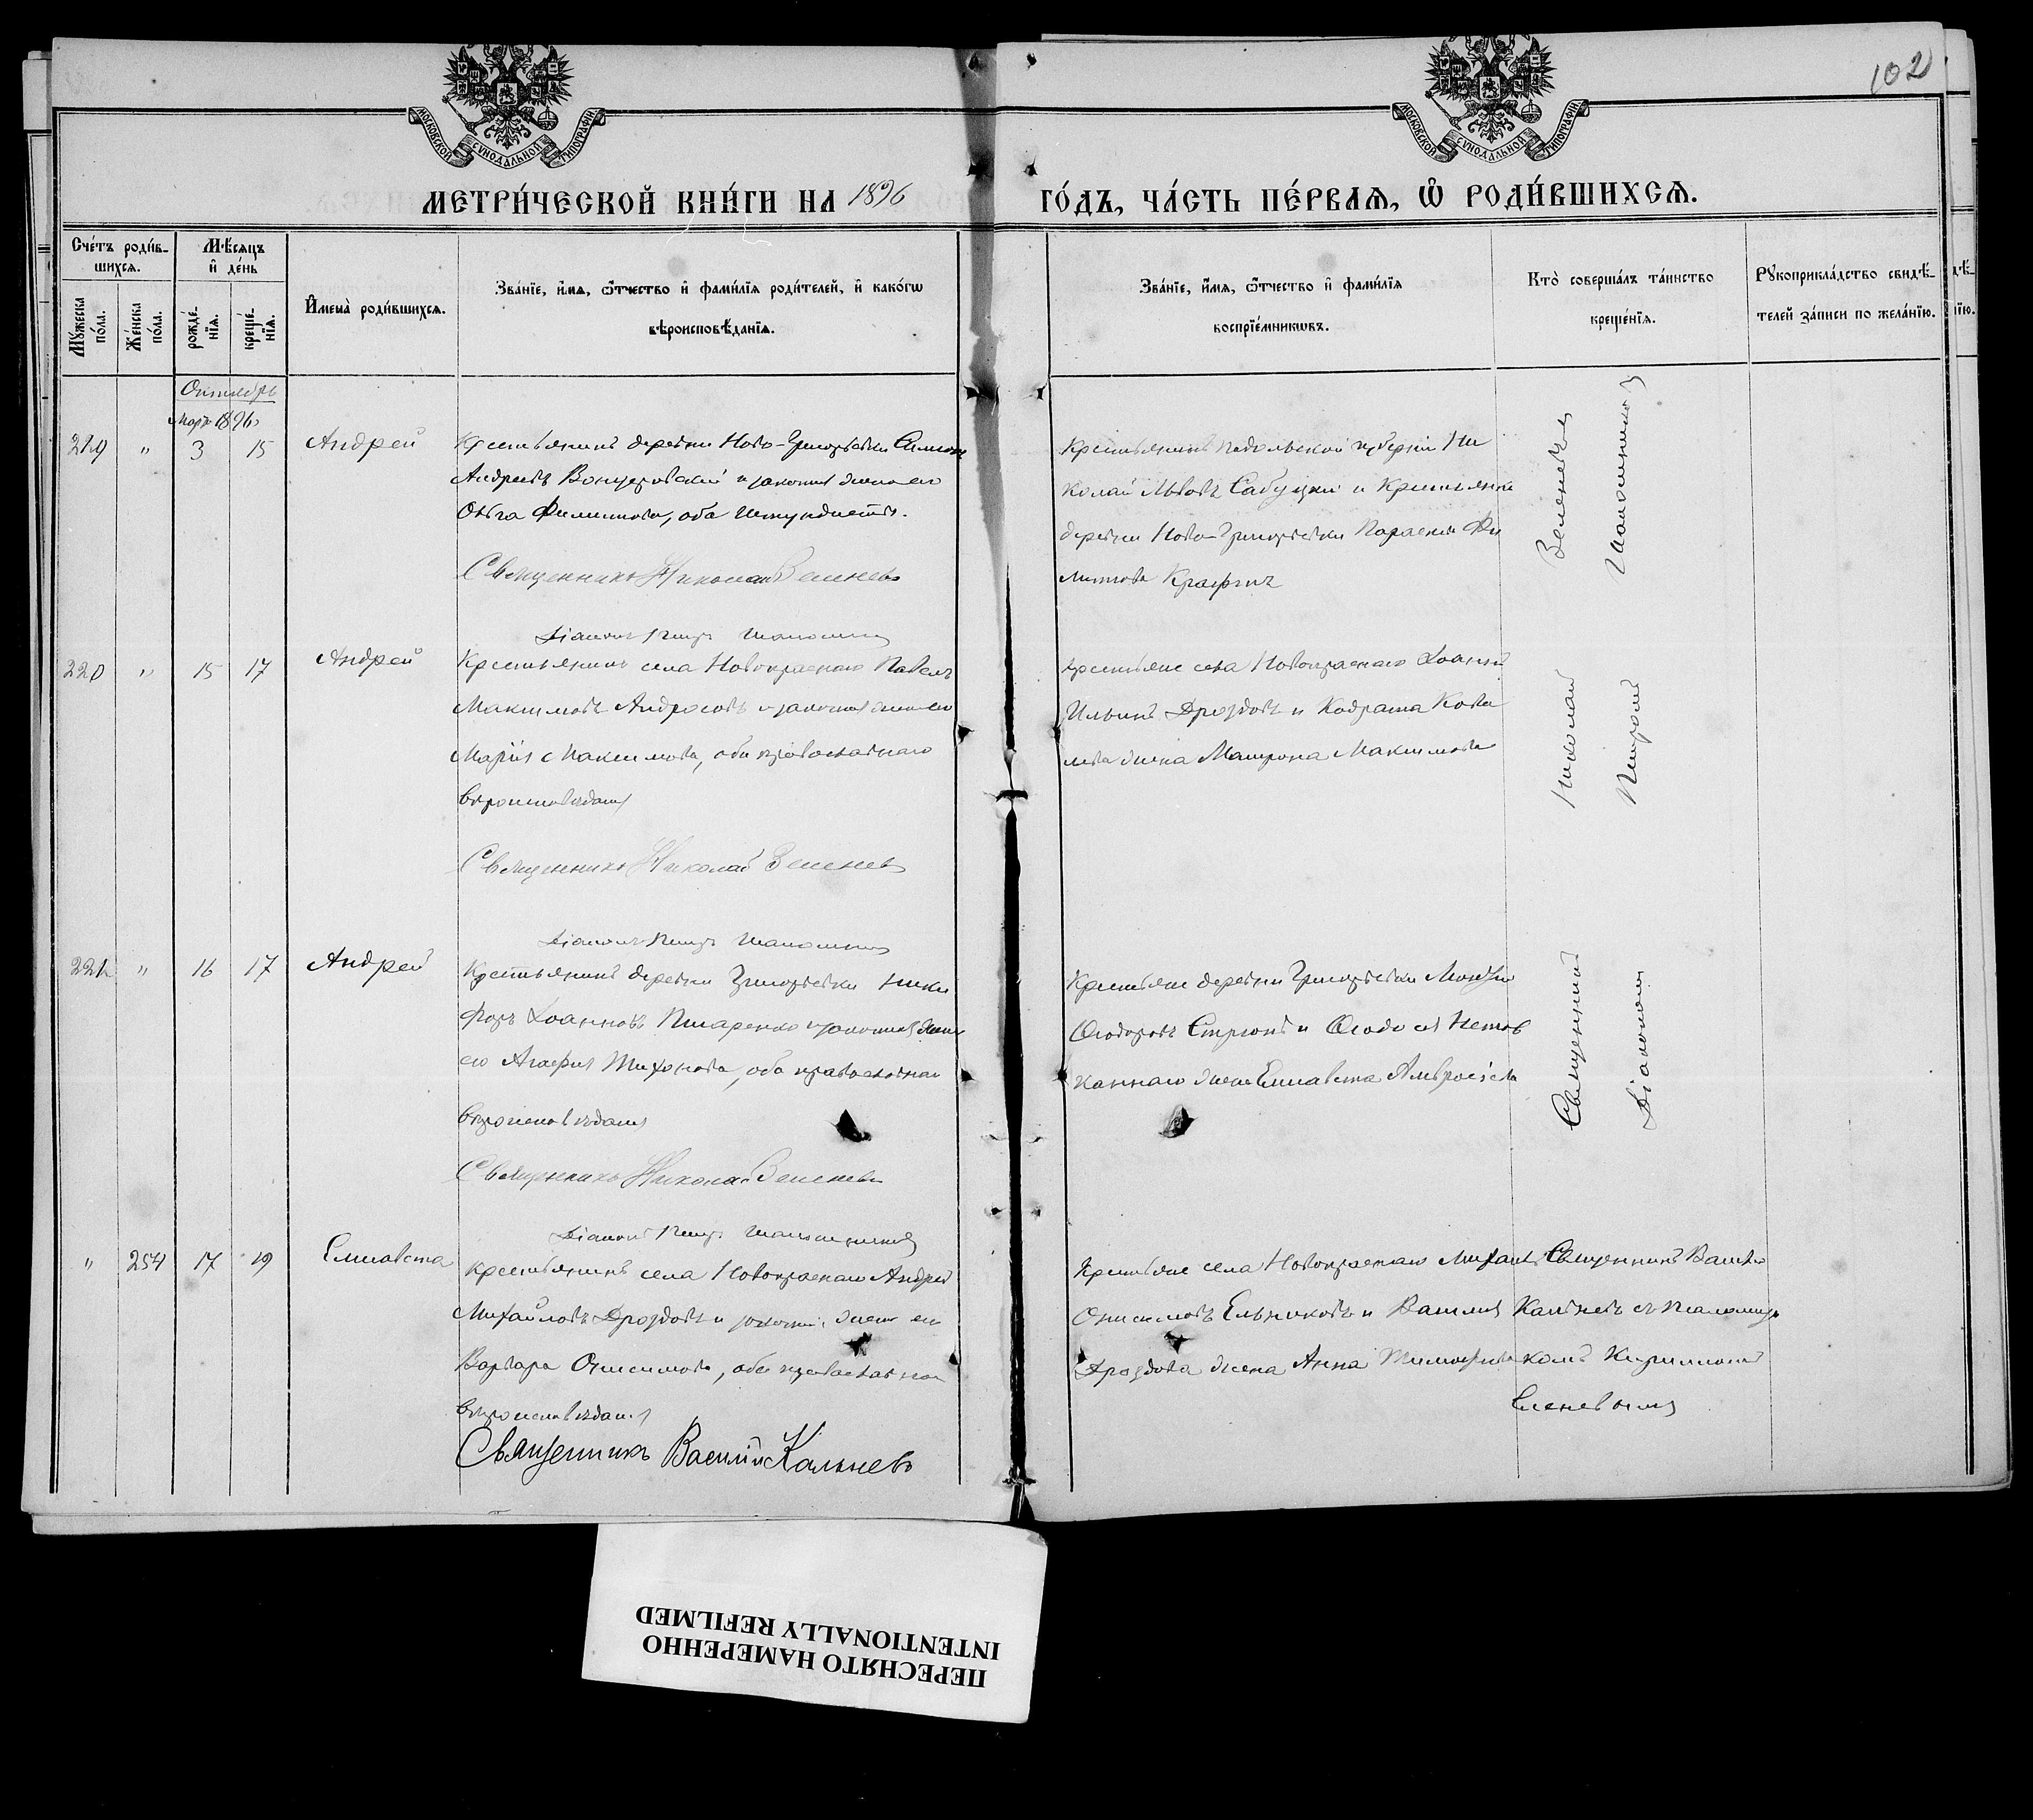 102
МОСКОВСКОЙ СѴНОДАЛЬНОЙ ТИПОГРАФІИ
МОСКОВСКОЙ СѴНОДАЛЬНОЙ ТИПОГРАФІИ
МЕТРИ́ЧЕСКОЙ КНИ́ГИ НА 1896
ГО́ДЪ, ЧА́СТЬ ПЕ́РВАѦ, Ѡ҆ РОДИ́ВШИХСѦ.
Счѐтъ роди́в-
шихсѧ.
Мꙋ́жеска
по́ла.
Же́нска
по́ла.
Мѣ́сяцъ
и҆ де́нь
рожде́-
нїѧ.
креще́-
нїѧ.
И҆мена̀ роди́вшихсѧ.
Зва́нїе, и҆́мѧ, ѻ҆́тчество и҆ фами́лїѧ роди́телей, и҆ како́гѡ
вѣроисповѣ́данїѧ.
Зва́нїе, и҆́мѧ, ѻ҆́тчество и҆ фами́лїѧ
воспрїе́мникѡвъ.
Кто̀ соверша́лъ та́инство
креще́нїѧ.
Рꙋкоприкла́дство свидѣ́-
телей за́писи по жела́нїю.
Октябрь
Мартъ 1896
219 " 3 15 Андрей
Крестьянинъ деревни Ново-Григорьевки Симонъ
Андреевъ и законная жена его
Ольга Филипова, оба
Священникъ Николай Зеленевъ
Діаконъ Петръ
Крестьянинъ Подольской губерніи Ни
колай Львовъ Сабуцкій и Крестьянки
деревни Ново-Григорьевки Параскева Фи
липова
220 " 15 17 Андрей
Крестьянинъ села Новокраснаго Павелъ
Максимовъ Андросовъ и законная жена его
Марія Максимова, оба православнаго
вѣроисповѣданія
Священникъ Николай Зеленевъ
Діаконъ Петръ
Крестьяне села Новокраснаго Іоаннъ
Ильинъ Дроздовъ и Кодрата Кова
лева жена Матрона Максимова
221 " 16 17 Андрей
Крестьянинъ деревни Григорьевки Ники
форъ Іоанновъ Писаренко и законная жена
его Агафія Тихонова, оба православнаго
вѣроисповѣданія
Священникъ Николай Зеленевъ
Діаконъ Петръ
Крестьяне деревни Григорьевки
Ѳеодоровъ и Ѳеодосія
жена Елисавета Амвросіева
Священникъ Николай Зеленевъ
Діакономъ Петромъ
" 254 17 19 Елисавета
Крестьянинъ села Новокраснаго Андрей
Михайловъ Дроздовъ и законная жена его
Варвара Онисимова, оба православнаго
вѣроисповѣданія
Священникъ Василій Кальневъ
Крестьяне села Новокраснаго Михаилъ
Онисимовъ Ельниковъ и Василія
Дроздова жена Анна Тимофеева
Священникъ Василій
Кальневъ съ псаломщи
комъ Кирилломъ
ПЕРЕСНЯТО НАМЕРЕННО
INTENTIONALLY REFILMED